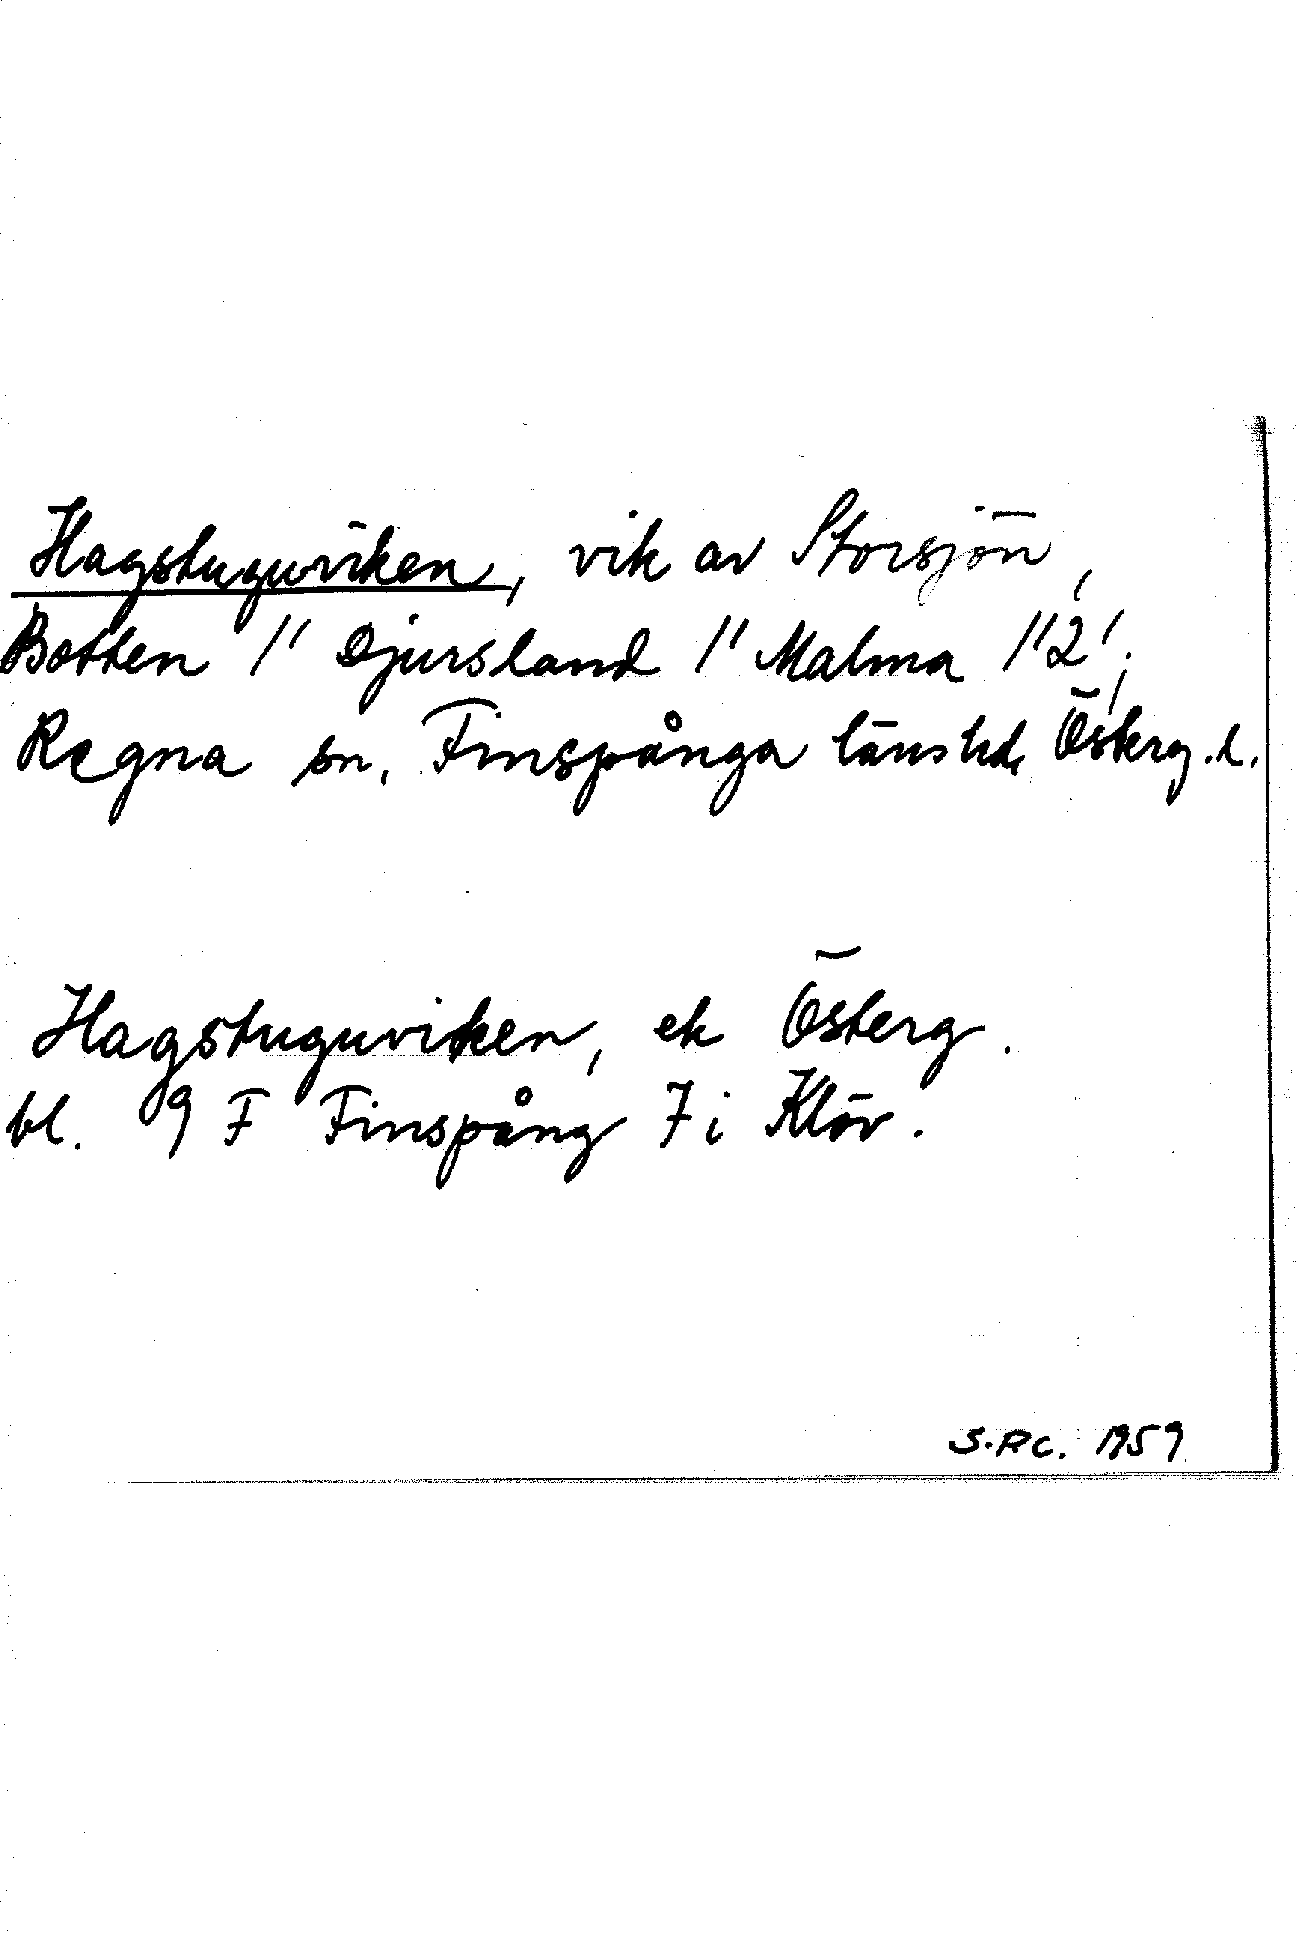 Hagstuguviken, vik av Storsjön,
Botten 1" Djursland 1" Malma 1"2';
Regna sn, Finspånga länshd, Österg.l.
Hagstuguviken, ek Österg.
bl. 9 F Finspång 7 i Klöv.
S.P.C. 1959